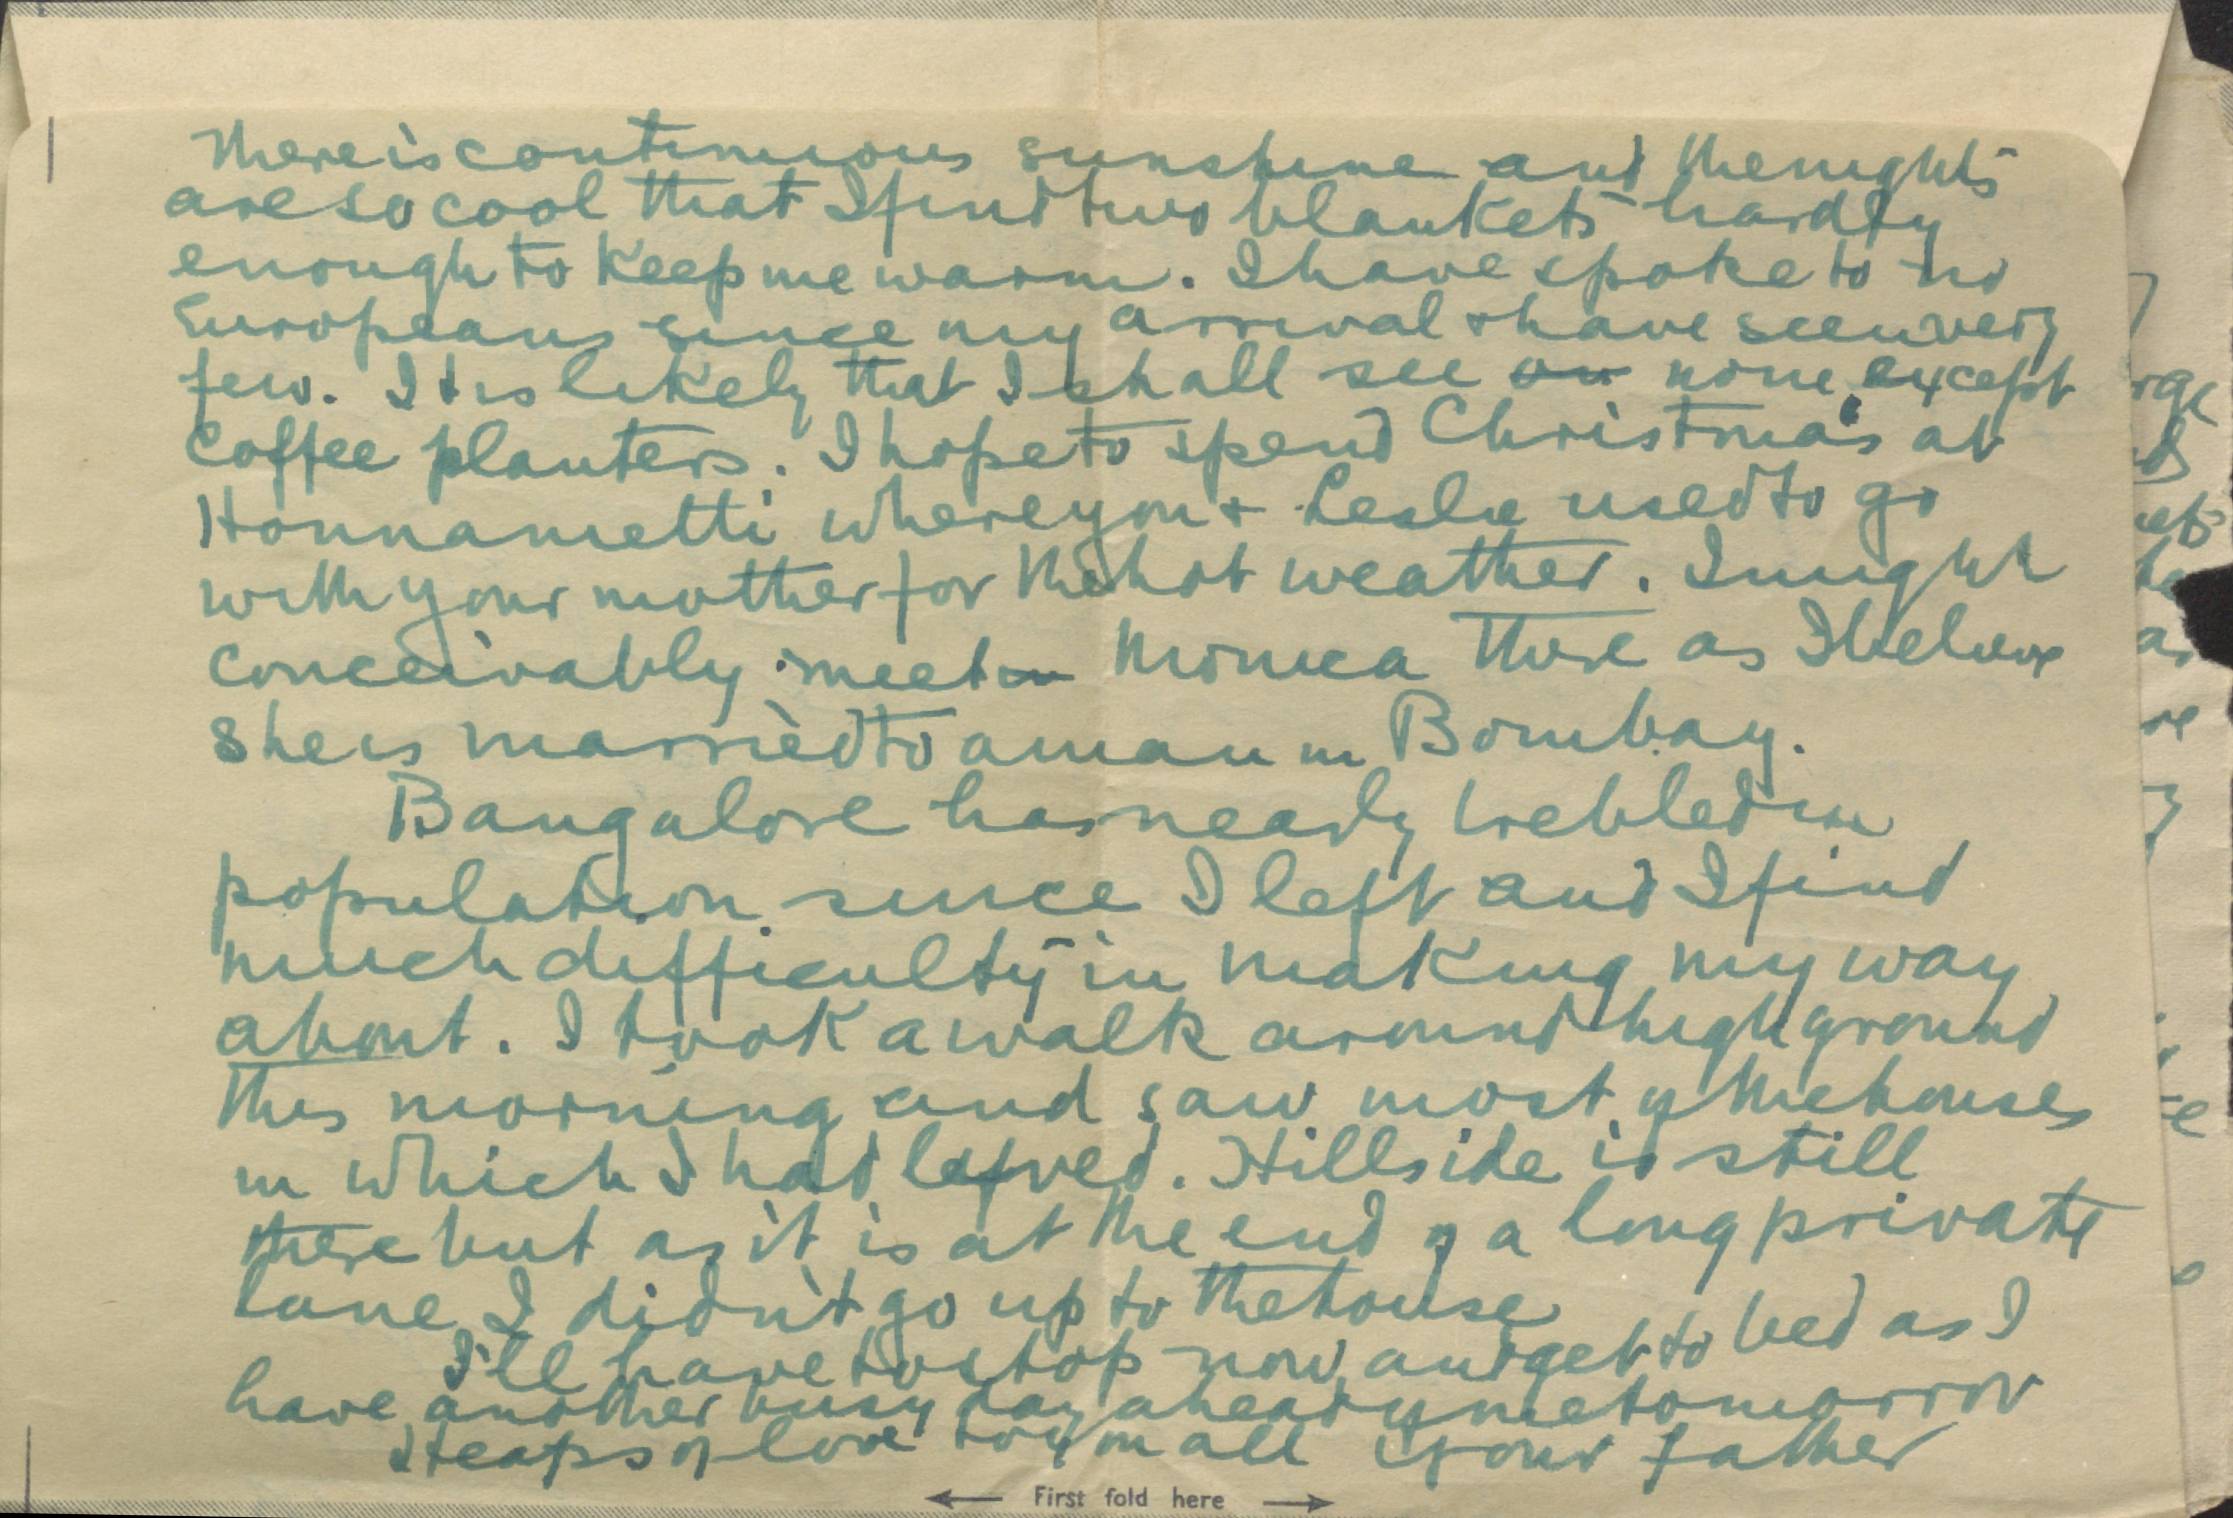 There is continuous sunshine and the nights
are so cool that I find two blankets hardly
enough to keep me warm. I have spoke to no
Europeans since my arrival & have seen very
few. It is likely that I shall see on none except
coffee planters. I hope to spend Christmas at
Honnametti where you & Leslie used to go
with your mother for the hot weather. I might
conceivably meet Monica there as I believe
she is married to a man in Bombay.
Bangalore has nearly trebled in
population since I left and I find
much difficulty in making my way
about. I took a walk around high ground
this morning and saw most of the houses
in which I had lived. Hillside is still
there but as it is at the end of a long private
lane I didn't go up to the house
I'll have to stop now and get to bed as I
have another busy day ahead of me tomorrow
Heaps of love to you all Your father
← First fold here →